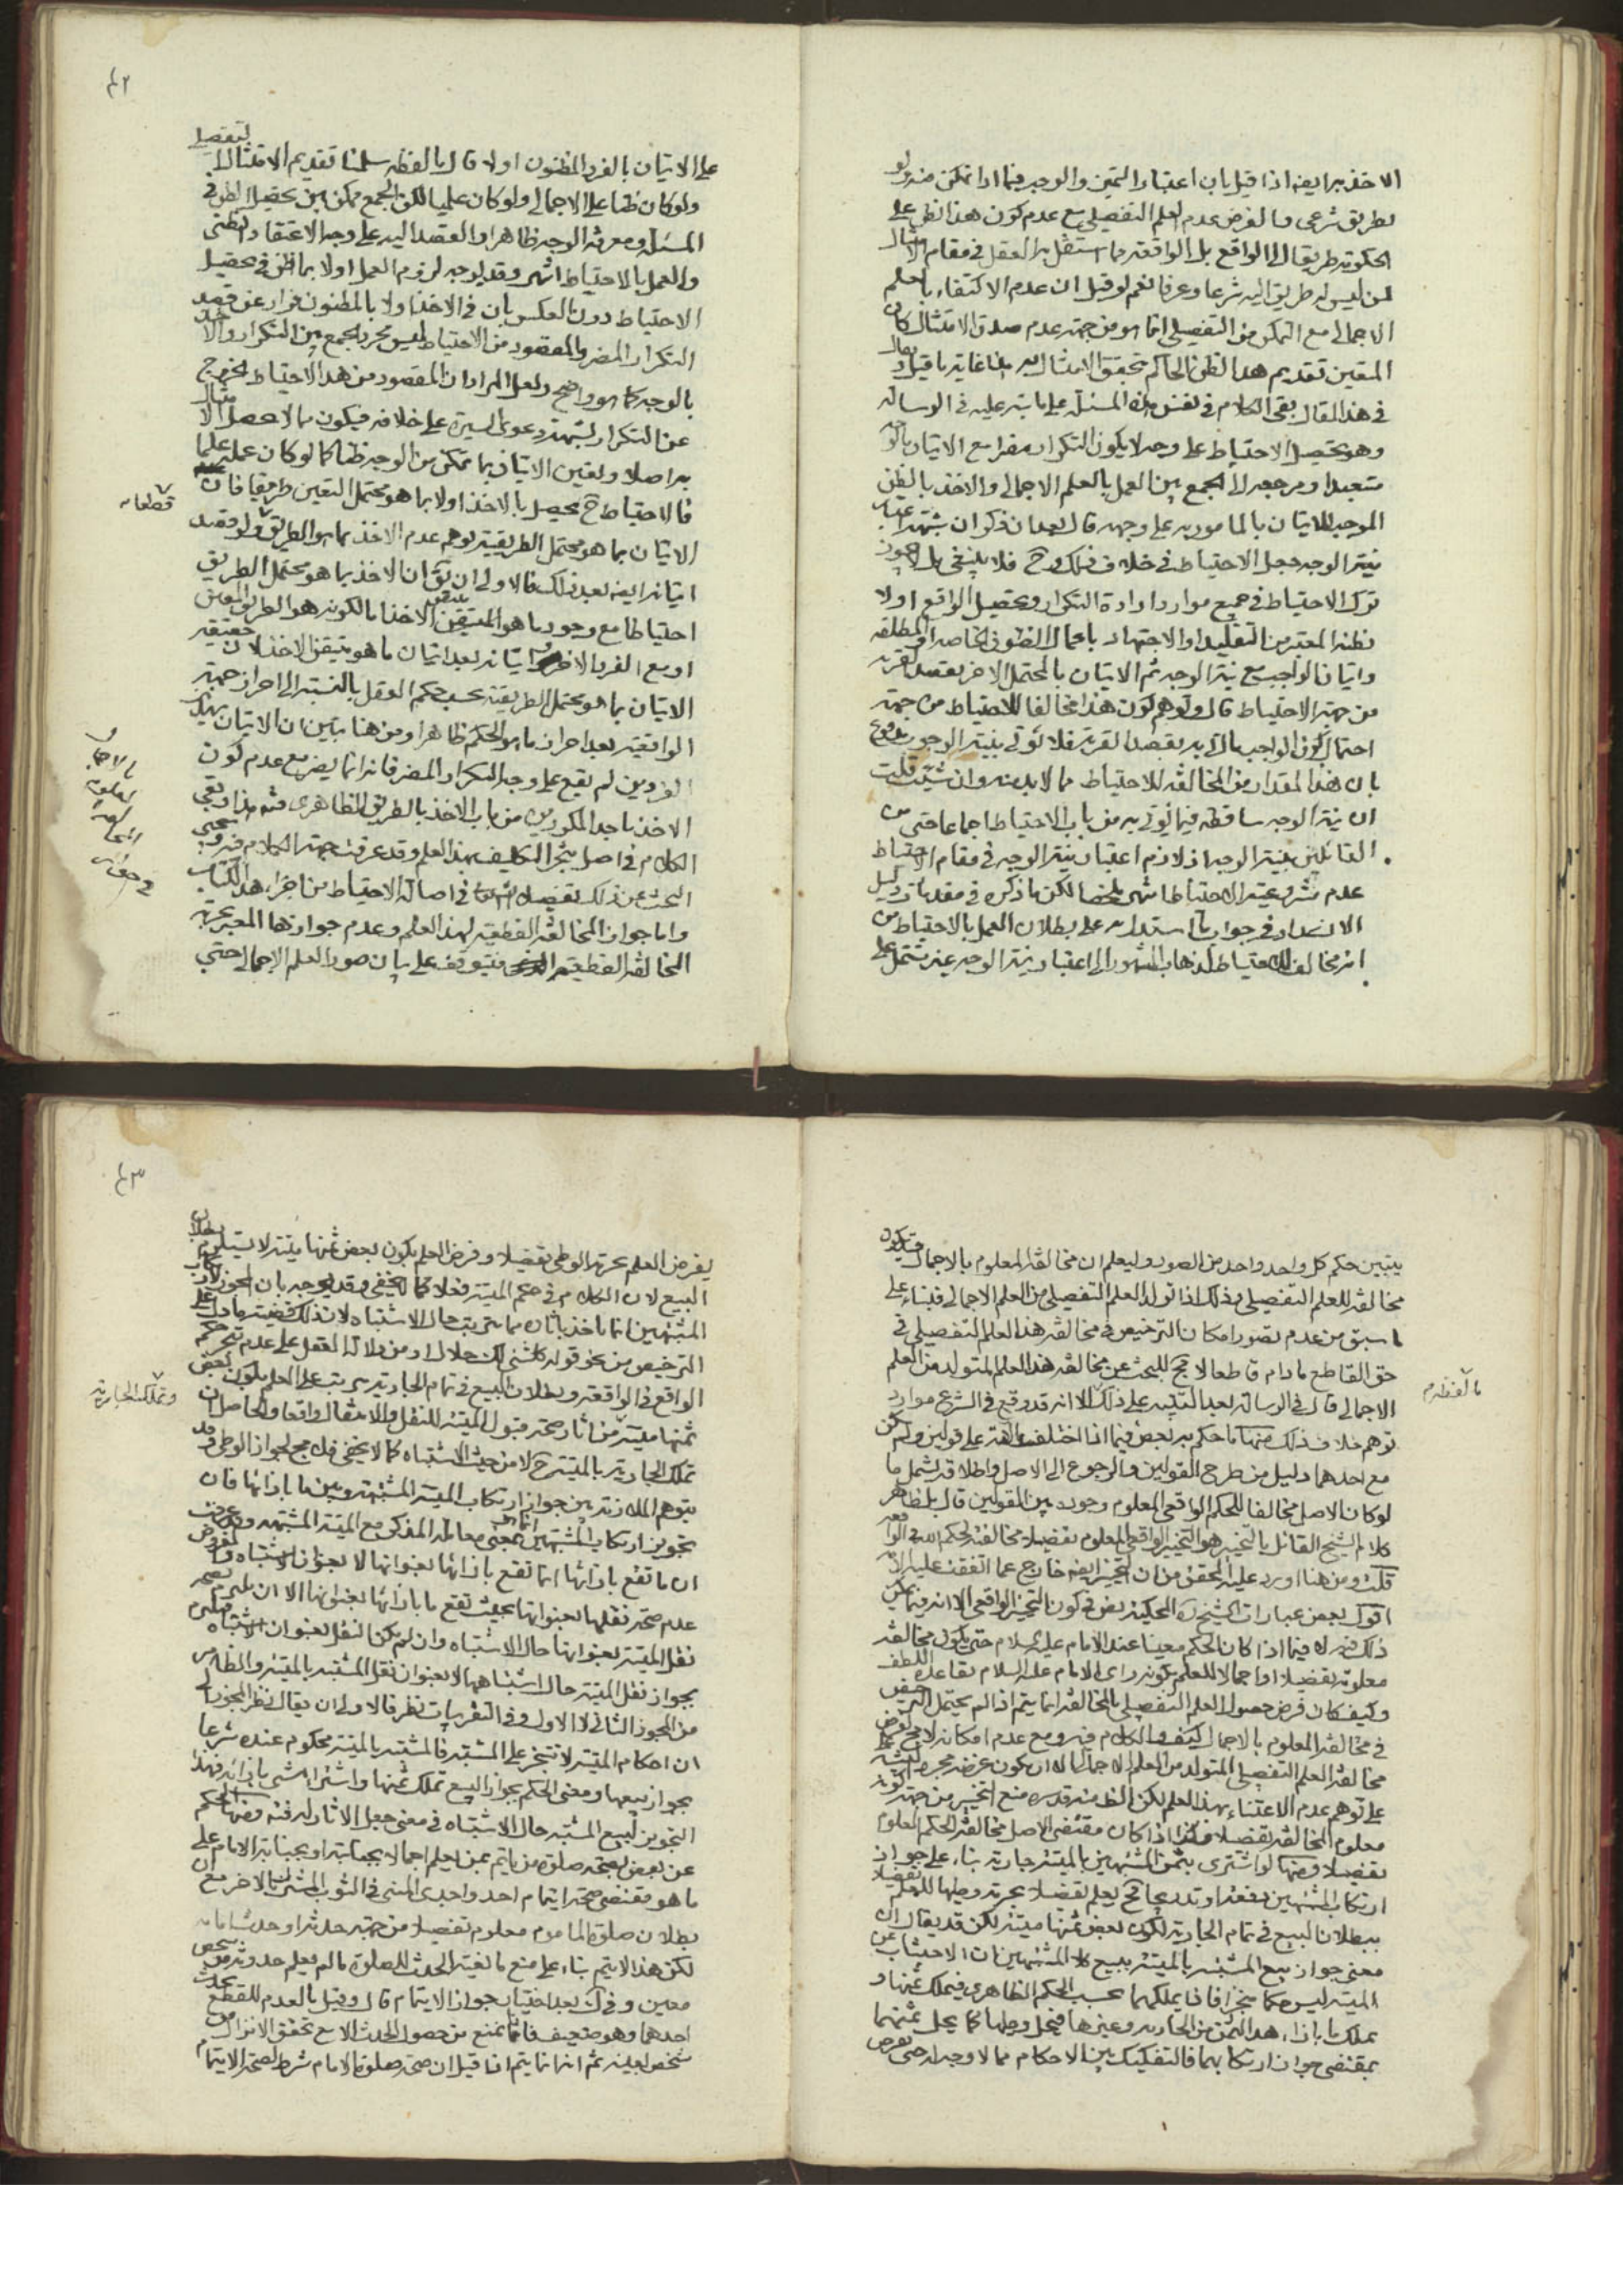 الاخذ به ايضا اذا قيل بان اعتبار التميز والوجه فيما اذا تمكن منه ولو
بطريق شرعى والفرض عدم العلم التفصيلى مع عدم كون هذا الظن على
الحكومة طريقا الى الواقع بل الواقعة مما استقل به العقل فى مقام الامتثال
لمن ليس له طريق اليه شرعا وعرفا نعم لو قيل ان عدم الاكتفاء بالعلم
الاجمالى مع التمكن من التفصيلى انما هو من جهة عدم صدق الامتثال كان
المتعين تقديم هذا الظن الحاكم بتحقق الامتثال به هذا غاية ما قيل او يقال
فى هذا المقال بقى الكلام فى نفس هذه المسئلة على ما نبه عليه فى الرسالة
وهو تحصيل الاحتياط على وجه لا يكون التكرار مضرا مع الاتيان بالوجه
متعبدا ومرجعه الى الجمع بين العمل بالعلم الاجمالى والاخذ بالظن
الموجب للاتيان بالمأمور به على وجهه قال بعد ان ذكر ان شبهة اعتبار
نية الوجه جعل الاحتياط فى خلاف ذلك وح فلا ينبغى بل لا يجوز
ترك الاحتياط فى جميع موارد ارادة التكرار وتحصيل الواقع اولا
بظنه المعتبر من التقليد او الاجتهاد باعمال الظنون الخاصة او المطلقة
واتيان الواجب مع نية الوجه ثم الاتيان بالمحتمل الاخر بقصد القربة
من جهة الاحتياط قال وتوهم كون هذا مخالفا للاحتياط من جهة
احتمال كون الواجب ما اتى به بقصد القربة فلا يؤتى بنية الوجوب مدفوع
بان هذا المقدار من المخالفة للاحتياط مما لا بد منه وان شئت قلت
ان نية الوجه ساقطة فيما يؤتى به من باب الاحتياط اجماعا حتى من
القائلين بنية الوجه اذ لازم اعتبار نية الوجه فى مقام الاحتياط
عدم مشروعية الاحتياط انتهى ملخصا لكن ما ذكره فى مقدمات دليل
الانسداد فى جواب ما استدل به على بطلان العمل بالاحتياط من
انه مخالف للاحتياط لذهاب المشهور الى اعتبار نية الوجه غير مشتمل على
٤٢
على الاتيان بالفرد المظنون اولا قال ما لفظه سلمنا تقديم الامتثال التفصيلى
ولو كان ظنيا على الاجمالى ولو كان علميا لكن الجمع ممكن بين تحصيل الظن فى
المسئلة ومعرفة الوجه ظاهرا والقصد اليه على وجه الاعتقاد الظنى
والعمل بالاحتياط انتهى وقد يوجه لزوم العمل اولا بما ظن فى تحصيل
الاحتياط دون العكس بان فى الاخذ اولا بالمظنون فرار عن قصد
التكرار المضر والمقصود من الاحتياط ليس مجرد الجمع بين التكرار والاخذ
بالوجه كما هو واضح ولعل المراد ان المقصود من هذا الاحتياط الخروج
عن التكرار لشبهة دعوى السيرة على خلافه فيكون مما لا يحصل الامتثال
به اصلا وتعين الاتيان بما تمكن من الوجه ظنا كما لو كان عمله علميا
فالاحتياط ح يحصل بالاخذ اولا بما هو محتمل التعين طريقا فان
قطعا
الاتيان بما هو محتمل الطريقية يوهم عدم الاخذ بما هو الطريق ولو قصد
اتيانه ايضا بعد ذلك فالاولى ان يق ان الاخذ بما هو محتمل الطريق
احتياطا مع وجود ما هو المتيقن الاخذ بالكونه هو الطريق المعين
او مع الفرد الاخر اتيانه بعد اتيان ما هو متيقن الاخذ لان حقيقة
الاتيان بما هو محتمل الطريقية بحسب حكم العقل بالنسبة الى احراز جهة
الواقعية بعد احراز ما هو الحكم ظاهرا ومن هنا يتبين ان الاتيان بهذين
الفردين لم يقع على وجه التكرار المضر فانه انما يضر مع عدم كون
الاخذ باحد المكررين من باب الاخذ بالطريق الظاهرى فتم هذا وبقى
الكلام فى اصل تنجز التكليف بهذا العلم وقد عرفت جهة الكلام فيه ويجيى
البحث عن ذلك تفصيلا فى اصالة الاحتياط من اجزاء هذا الكتاب
واما جواز المخالفة القطعية لهذا العلم وعدم جوازها المعبر بحرمة
المخالفة القطعية فيتوقف على بيان صور العلم الاجمالى حتى
يتبين حكم كل واحد واحد من الصور وليعلم ان مخالفة المعلوم بالاجمال قد يكون
مخالفة للعلم التفصيلى وذلك اذا تولد العلم التفصيلى من العلم الاجمالى فبناء على
ما سبق من عدم تصور امكان الترخيص فى مخالفة هذا العلم التفصيلى فى
حق القاطع ما دام قاطعا لا مجال للبحث عن مخالفة هذا العلم المتولد من العلم
الاجمالى قال فى الرسالة بعد التنبيه على ذلك الا انه قد وقع فى الشرع موارد
ما لفظه
توهم خلاف ذلك منها ما حكم به بعض فيما اذا اختلفت الامة على قولين ولم يكن
مع احدهما دليل من طرح القولين والرجوع الى الاصل واطلاقه يشمل ما
لو كان الاصل مخالفا للحكم الواقعى المعلوم وجوده بين القولين قال بل ظاهر
كلام الشيخ القائل بالتخيير هو التخيير الواقعى المعلوم تفصيلا مخالفته لحكم الله الواقعى
قلت ومن هنا اورد عليه المحقق من ان التخيير ايضا خارج عما اتفقت عليه الامة
اقول بعض عبارات الشيخ المحكية نص فى كون التخيير الواقعى الا انه فيما يمكن
ذلك فيما اذا كان الحكم معينا عند الامام عليه السلام حتى يكون مخالفة
معلومة تفصيلا او اجمالا للعلم بكونه راى الامام عليه السلام بقاعدة اللطف
وكيف كان فرض حصول العلم التفصيلى بالمخالفة انما يتم اذا لم يحتمل الترخيص
فى مخالفة المعلوم بالاجمال كيف والكلام فيه ومع عدم امكانه لا مجال لفرض
مخالفة العلم التفصيلى المتولد من العلم الاجمالى الا ان يكون غرضه مجرد التنبيه
على توهم عدم الاعتناء بهذا العلم لكن الظ منه قدس سره منع التخيير من جهة كونه
معلوم المخالفة تفصيلا وكذا اذا كان مقتضى الاصل مخالفة الحكم المعلوم
تفصيلا ومنها لو اشترى بثمن المشتبهين بالميتة جارية بناء على جواز
ارتكاب المشتبهين دفعة او تدريجا فح يعلم تفصيلا بحرمة وطيها للعلم تفصيلا
ببطلان البيع فى تمام الجارية لكون بعض ثمنها ميتة لكن قد يقال ان
معنى جواز بيع المشتبه بالميتة ببيع كلا المشتبهين ان الاجتناب عن
الميتة ليس حكما منجزا فاذا يملكهما بحسب الحكم الظاهرى فيملك ثمنها و
يملك ما بازاء هذا الثمن من الجارية وغيرها فيحل وطيها كما يحل ثمنهما
بمقتضى جواز ارتكابهما فالتفكيك بين الاحكام مما لا وجه له حتى يفرض
٤٣
يفرض العلم بحرمة الوطى تفصيلا وفرض العلم بكون بعض ثمنها ميتة لا يستلزم بطلان
البيع لان الكلام فى حكم الميتة فعلا كما لا يخفى وقد يوجه بان المجوز لارتكاب
المشتبهين انما ياخذ باثار ما يترتب حال الاشتباه لان ذلك قضية ما دل على
الترخيص من نحو قوله كل شئ لك حلال او من دلالة العقل على عدم تنجز حكم
الواقع فى الواقعة وبطلان البيع فى تمام الجارية يترتب على العلم بكون بعض
ثمنها ميتة من اثار صحة قبول الميتة للنقل والانتقال واقعا والحاصل ان
وتملك الجارية
تملك الجارية بالميتة ح لا من حيث الاشتباه كما لا يخفى فلا مجال لجواز الوطى وقد
يتوهم الملازمة بين جواز ارتكاب الميتة المشتبهة وبين ما بازائها فان
تجويز ارتكاب المشتبهين انما هو بمعنى معاملة المذكى مع الميتة المشتبهة وقد عرفت
ان ما تقع بازائها انما تقع بازائها بعنوانها لا بعنوان الاشتباه والمفروض
عدم صحة نقلها بعنوانها بحيث تقع ما بازائها بعنوانها الا ان يلتزم بصحة
نقل الميتة بعنوانها حال الاشتباه وان لم يكن النقل بعنوان الاشتباه فيلتزم
بجواز نقل الميتة حال اشتباهها لا بعنوان نقل المشتبه بالميتة والظاهر
من المجوز الثانى لا الاول وفى التقريبات نظر فالاولى ان يقال نظر المجوز الى
ان احكام الميتة لا تتنجز على المشتبه فالمشتبه بالميتة محكوم عنده شرعا
بجواز بيعها ومعنى الحكم بجواز البيع تملك ثمنها واشتراء شئ بازائه فهذا
التجويز لبيع المشتبه حال الاشتباه فى معنى جعل الاثار له فتم ومنها الحكم
عن بعض بصحة صلوة من ياتم بمن يعلم اجمالا بجنابته او بجنابة الامام على
ما هو مقتضى صحة ايتمام احد واجدى المنى فى الثوب المشترك بالاخر مع ان
بطلان صلوة الماموم معلوم تفصيلا من جهة حدثه او حدث امامه
لكن هذا لا يتم بناء على منع مانعية الحدث للصلوة ما لم يعلم حدوثه من شخص
معين وفى ك بعد اختيار جواز الايتمام قال وقيل بالعدم للقطع بحدث
احدهما وهو ضعيف فانا نمنع من حصول الحدث الا مع تحقق الانزال من
شخص بعينه ثم انه انما يتم اذا قيل ان صحة صلوة الامام شرط لصحة الايتمام